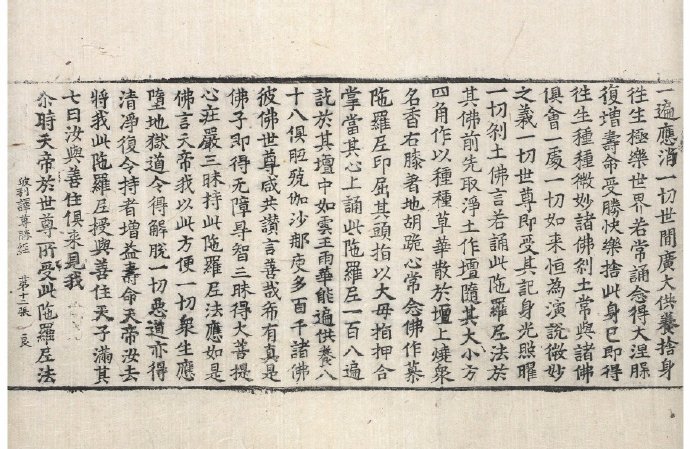 一遍應消一切世間廣大供養捨身
徃生極樂世界若常誦念得大涅槃
復增壽命受勝快樂捨此身已即得
徃生種種微妙諸佛剎土常與諸佛
俱會一處一切如来恒為演說微妙
之義一切世尊即受其記身光照曜
一切剎土佛言若誦此陁羅尼法於
其佛前先取淨土作壇隨其大小方
四角作以種種草華散於壇上燒衆
名香右膝著地胡跪心常念佛作慕
陁羅尼印屈其頭指以大母指押合
掌當其心上誦此陁羅尼一百八遍
訖於其壇中如雲王雨華能遍供養八
十八俱胝殑伽沙那庾多百千諸佛
彼佛世尊咸共讃言善哉希有真是
佛子即得无障㝵智三昧得大菩提
心庄嚴三昧持此陁羅尼法應如是
佛言天帝我以此方便一切衆生應
墮地獄道令得解脫一切惡道亦得
清淨復令持者增益壽命天帝汝去
將我此陁羅尼授與善住天子滿其
七日汝與善住俱来見我
尒時天帝於世尊所受此陁羅尼法
波利譯尊勝經 第十二張 良